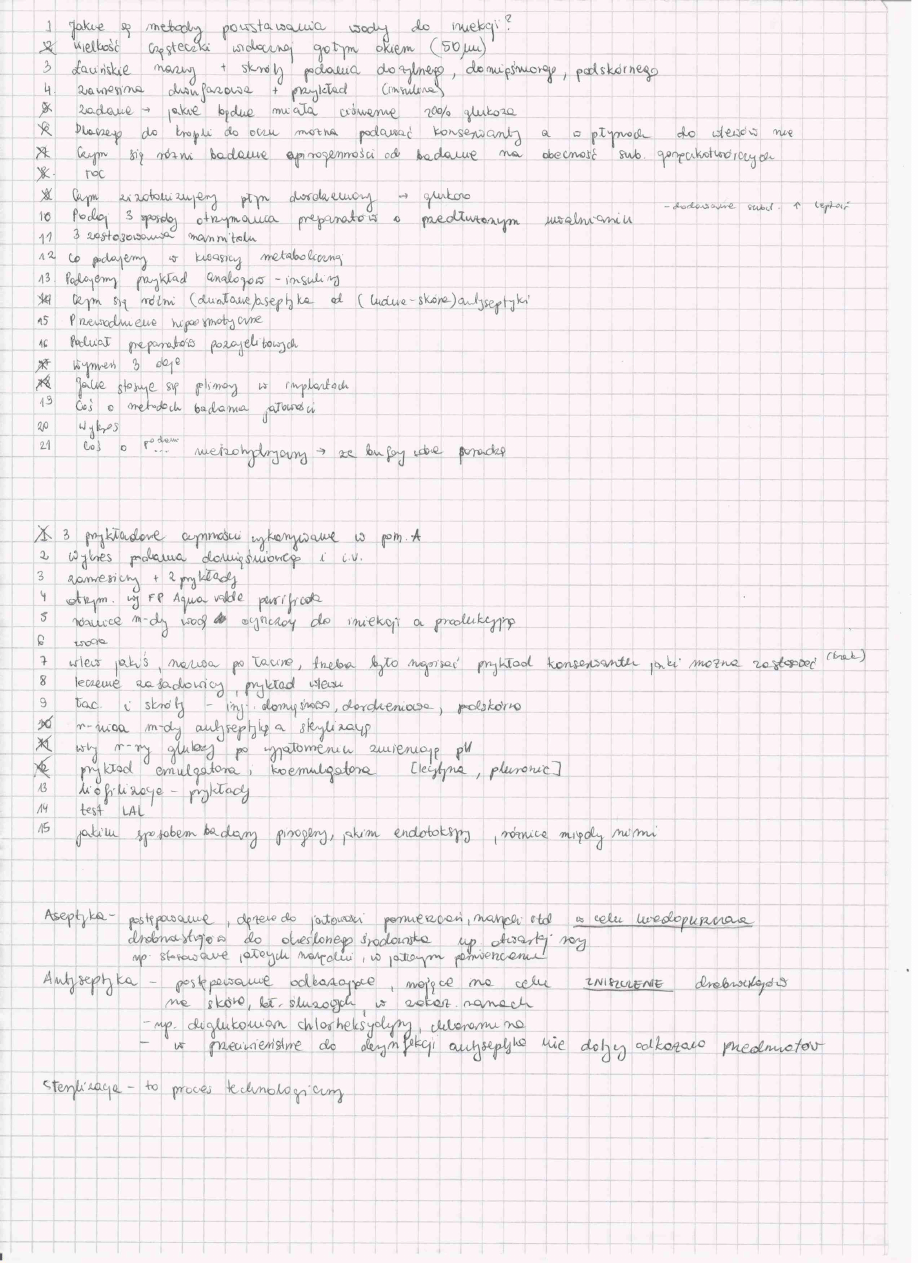 1 Jakie są metody powstawania wody do iniekcji?
2 Wielkość cząsteczki widocznej gołym okiem (50 µm)
3 Łacińskie nazwy + skróty podania dożylnego, domięśniowego, podskórnego
4. zawiesina dwufazowa + przykład (insulina)
zadanie → jakie będzie miała ciśnienie 20% glukoza
Dlaczego do kropli do oczu można podawać konserwanty a w płynach do wlewów nie
Czym się różni badanie apirogenności od badanie na obecność sub. gorączkotwórczych
8. roc
Czym zizotonizujemy płyn dordzeniowy → glukoza
10 Podaj 3 sposoby otrzymania preparatów o przedłużonym uwalnianiu - dodawanie subst. ↑ lepkość
11 3 zastosowania mannitolu
12 Co podajemy w kwasicy metabolicznej
13 Podajemy przykład analogów - insuliny
14 Czym się różni (działanie) aseptyka od (ludzie-skóra) antyseptyki
15 Przewodnienie hiperosmotyczne
16 Podział preparatów pozajelitowych
17 Wymień 3 oleje
18 Jakie stosuje się polimery w implantach
19 Coś o metodach badania jałowości
20 Wykres
21 Coś o podaw... nieizohydryczny → że bufory krwi poradzą
1. 3 przykładowe czynności wykonywane w pom. A
2 wykres podania domięśniowego i i.v.
3 zawiesiny + 2 przykłady
4 otrzym. wg FP Aqua valde purificata
5 różnice m-dy wodą oczyszcz do iniekcji a produkcyjną
6 woda
7 wlew jakiś, nazwa po łacinie, trzeba było napisać przykład konserwantu jaki można zastosować (brak)
8 leczenie zasadowicy, przykład wlewu
9 Łac i skróty - inj. domięśniowa, dordzeniowa, podskórna
10 r-nica m-dy antyseptyką a sterylizacją
11 wły r-ry glukozy po wyjałowieniu zmieniają pH
12 przykład emulgatora i koemulgatora [lecytyna, pluronic]
13 liofilizacja - przykłady
14 test LAL
15 jakim sposobem badamy pirogeny, jakim endotoksyny, różnice między nimi
Aseptyka - postępowanie, dążenie do jałowości pomieszczeń, narzędzi itd w celu niedopuszcza
drobnoustrojów do określonego środowiska np otwartej rany
np stosowanie jałowych narzędzi, w jałowym pomieszczeniu
Antyseptyka - postępowanie odkażające, mające na celu ZNISZCZENIE drobnoustrojów
na skórze, bł. śluzowych, w zakaż. ranach
- np. diglukonian chlorheksydyny, chloramina
- w przeciwieństwie do dezynfekcji antyseptyka nie dotyczy odkażania przedmiotów
Sterylizacja - to proces technologiczny